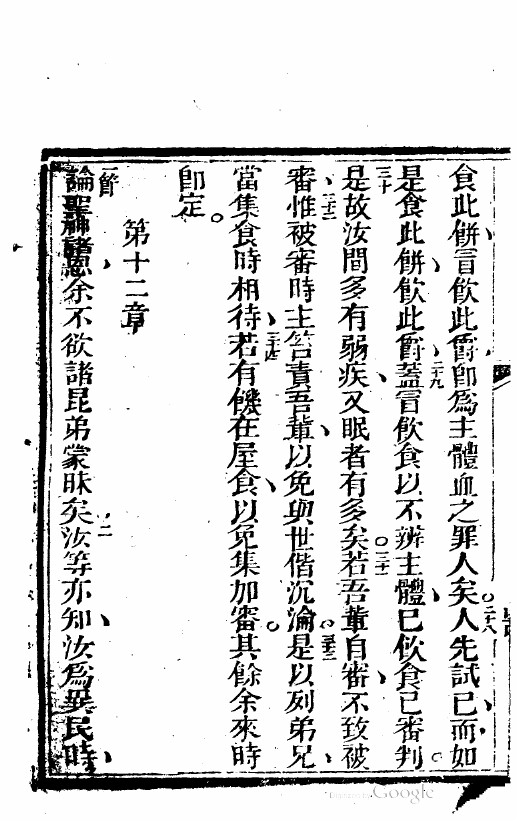 食此餅冒飲此爵卽爲主體血之罪人矣。二十八人先試已而如
是食此餅飲此爵二十九蓋冒飲食以不辨主體已飲食已審判。
三十是故汝間多有弱疾又眠者有多矣。三十一若吾輩自審不致被
審三十二惟被審時主笞責吾輩以免與世偕沉淪。三十三是以列弟兄
當集食時相待三十四若有饑在屋食以免集加審其餘余來時
卽定。
第十二章
一節論聖神諸恩余不欲諸昆弟蒙昧矣二汝等亦知汝爲異民時
Google